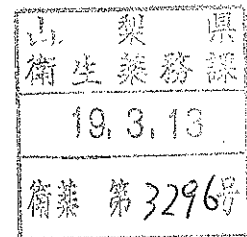 山梨県
衛生薬務課
19.3.13
衛薬 第3296号